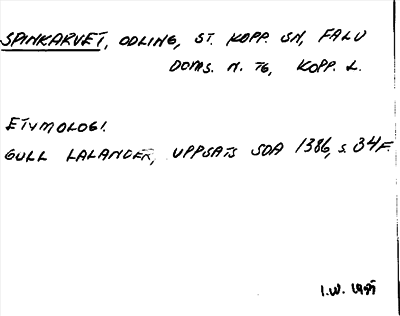 SPINKARVET, ODLING, ST. KOPP. SN, FALU
DOMS. N. TG, KOPP. L.
ETYMOLOGI.
GULL LALANDER, UPPSATS SOA 1386, S. 34F.
I.W.